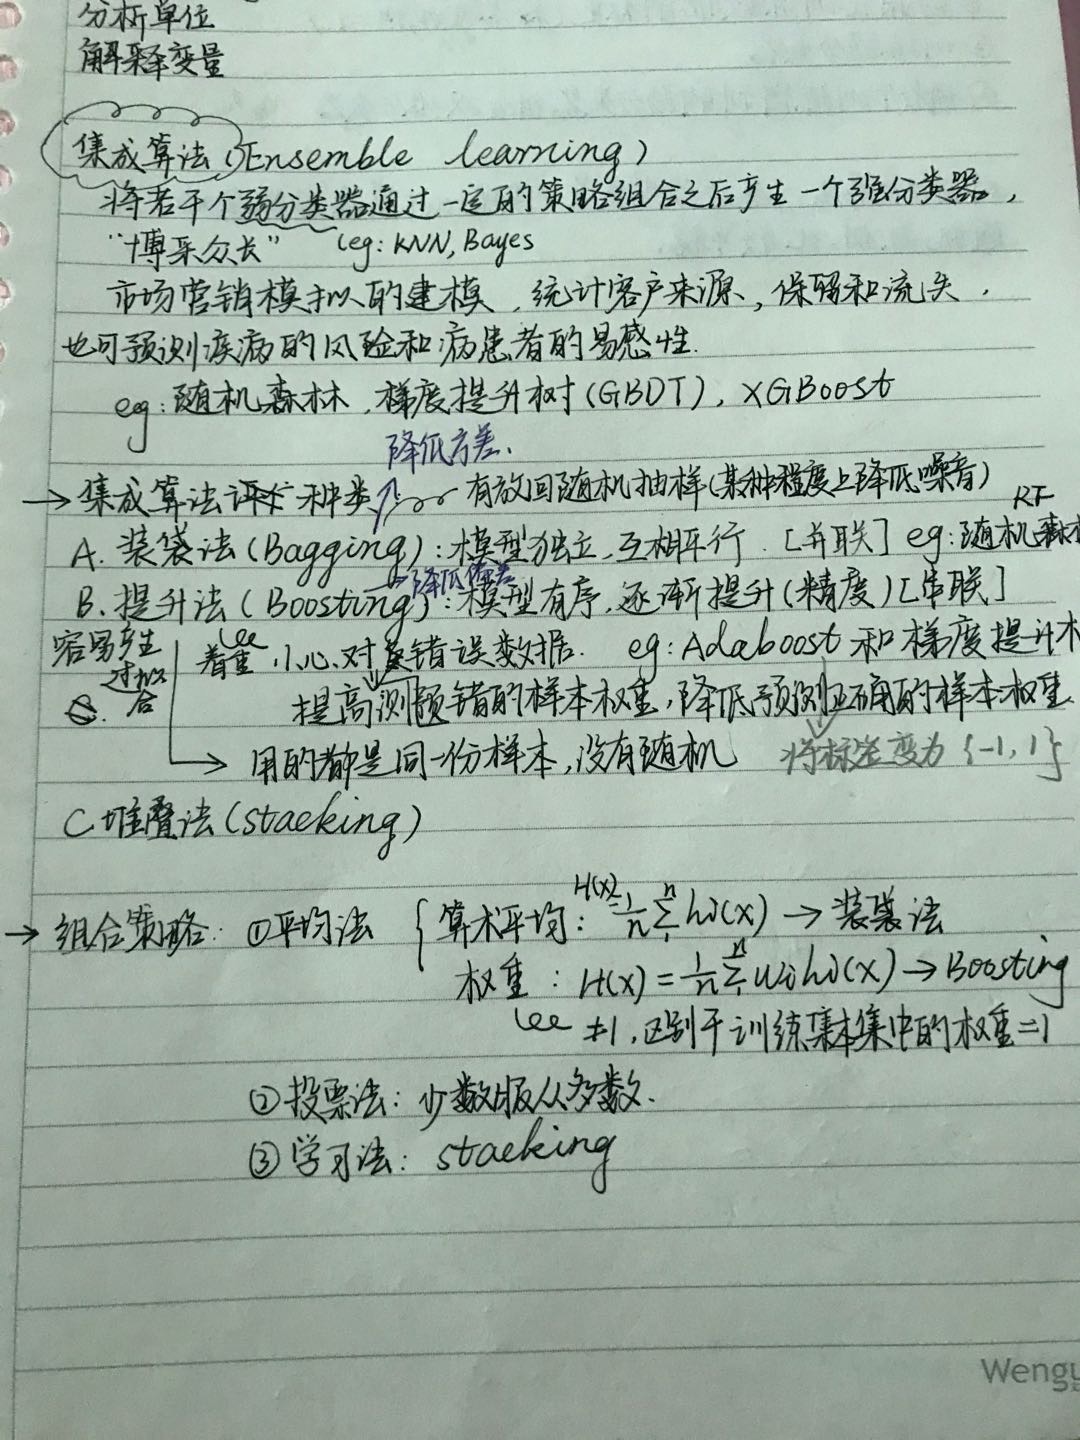 分析单位
解释变量
集成算法(Ensemble learning)
将若干个弱分类器通过一定的策略组合之后产生一个强分类器,
"博采众长" eg: KNN, Bayes
市场营销模拟的建模,统计客户来源,保留和流失,
也可预测疾病的风险和病患者的易感性.
eg:随机森林,梯度提升树(GBDT), XGBoost
降低方差.
→集成算法 种类 有放回随机抽样(某种程度上降低噪音)
RF
A. 装袋法(Bagging):模型独立,互相平行.[并联] eg:随机森林
降低偏差
B. 提升法(Boosting):模型有序,逐渐提升(精度)[串联]
容易产生过拟合
着重,小心对 错误数据. eg: Adaboost和梯度提升木
提高测预错的样本权重,降低预测正确的样本权重
→用的都是同一份样本,没有随机 将标签变为{-1,1}
C.堆叠法(stacking)
→组合策略: ①平均法 { 算术平均: H(x)=1/n Σ hi(x) → 装袋法
权重: H(x)=1/n Σ wihi(x) → Boosting
≠1,区别于训练集本集中的权重=1
②投票法: 少数服从多数.
③学习法: stacking
Wengu